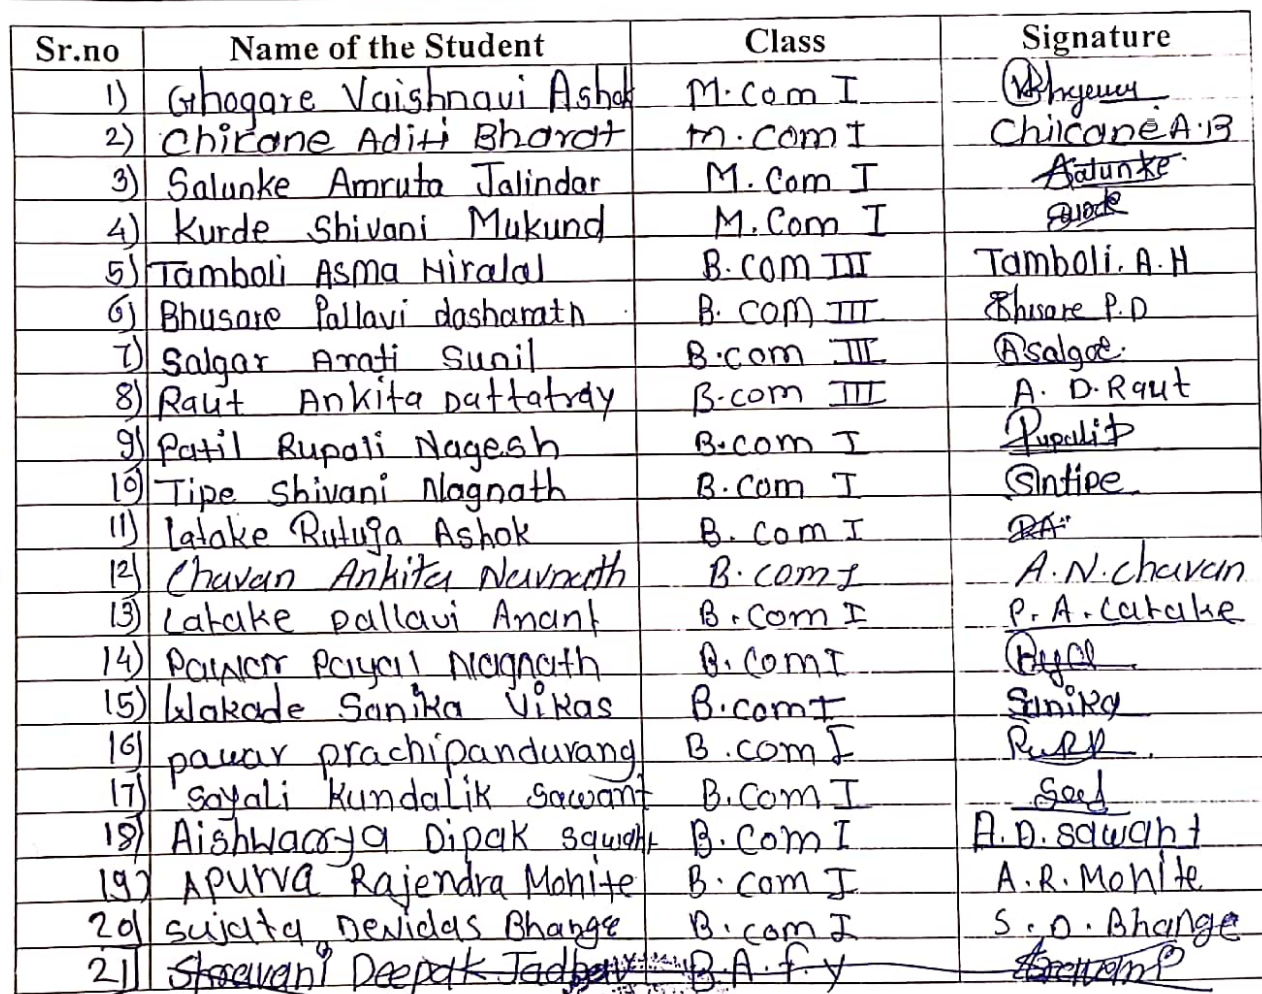 Sr.no Name of the Student Class Signature
1) Ghogare Vaishnavi Ashok M.com I
2) Chikane Aditi Bharat M.com I Chikane A.B
3) Salunke Amruta Jalindar M.Com I Salunke
4) Kurde Shivani Mukund M.Com I
5) Tamboli Asma Hiralal B.com III Tamboli. A.H
6) Bhusare Pallavi dasharath B. com III Bhusare P.D
7) Salgar Arati Sunil B.com III Asalgar
8) Raut Ankita Dattatray B.com III A. D. Raut
9) Patil Rupali Nagesh B.com I RupaliP
10) Tipe Shivani Nagnath B.com I Sntipe
11) Latake Rutuja Ashok B. com I RA
12) Chavan Ankita Navnath B.com I A.N.chavan
13) Latake pallavi Anant B.Com I P.A.Latake
14) Pawar Payal Nagnath B.Com I
15) Wakade Sanika Vikas B.com I Sanika
16) pawar prachipandurang B.com I
17) Sayali Kundalik Sawant B.Com I
18) Aishwarya Dipak sawant B.Com I A.D.sawant
19) Apurva Rajendra Mohite B.com I A.R.Mohite
20) sujata Devidas Bhange B.com I S.D.Bhange
21) Shravani Deepak Jadhav B.A.f.y